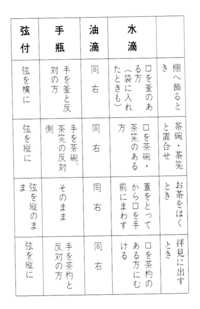 棚へ飾ると
き
茶碗・茶筅
と置合せ
お茶をはく
とき
拝見に出す
とき
水滴
口を釜のあ
る方
(袋に入れ
たときも)
口を茶碗・
茶筅のある
方
蓋をとって
から口を手
前にまわす
口を茶杓の
ある方にむ
ける
油滴
同右
同右
同右
同右
手瓶
手を釜と反
対の方
手を茶碗、
茶筅の反対
側
そのまま
手を茶杓と
反対の方
弦付
弦を横に
弦を縦に
弦を縦のま
ま
弦を縦に